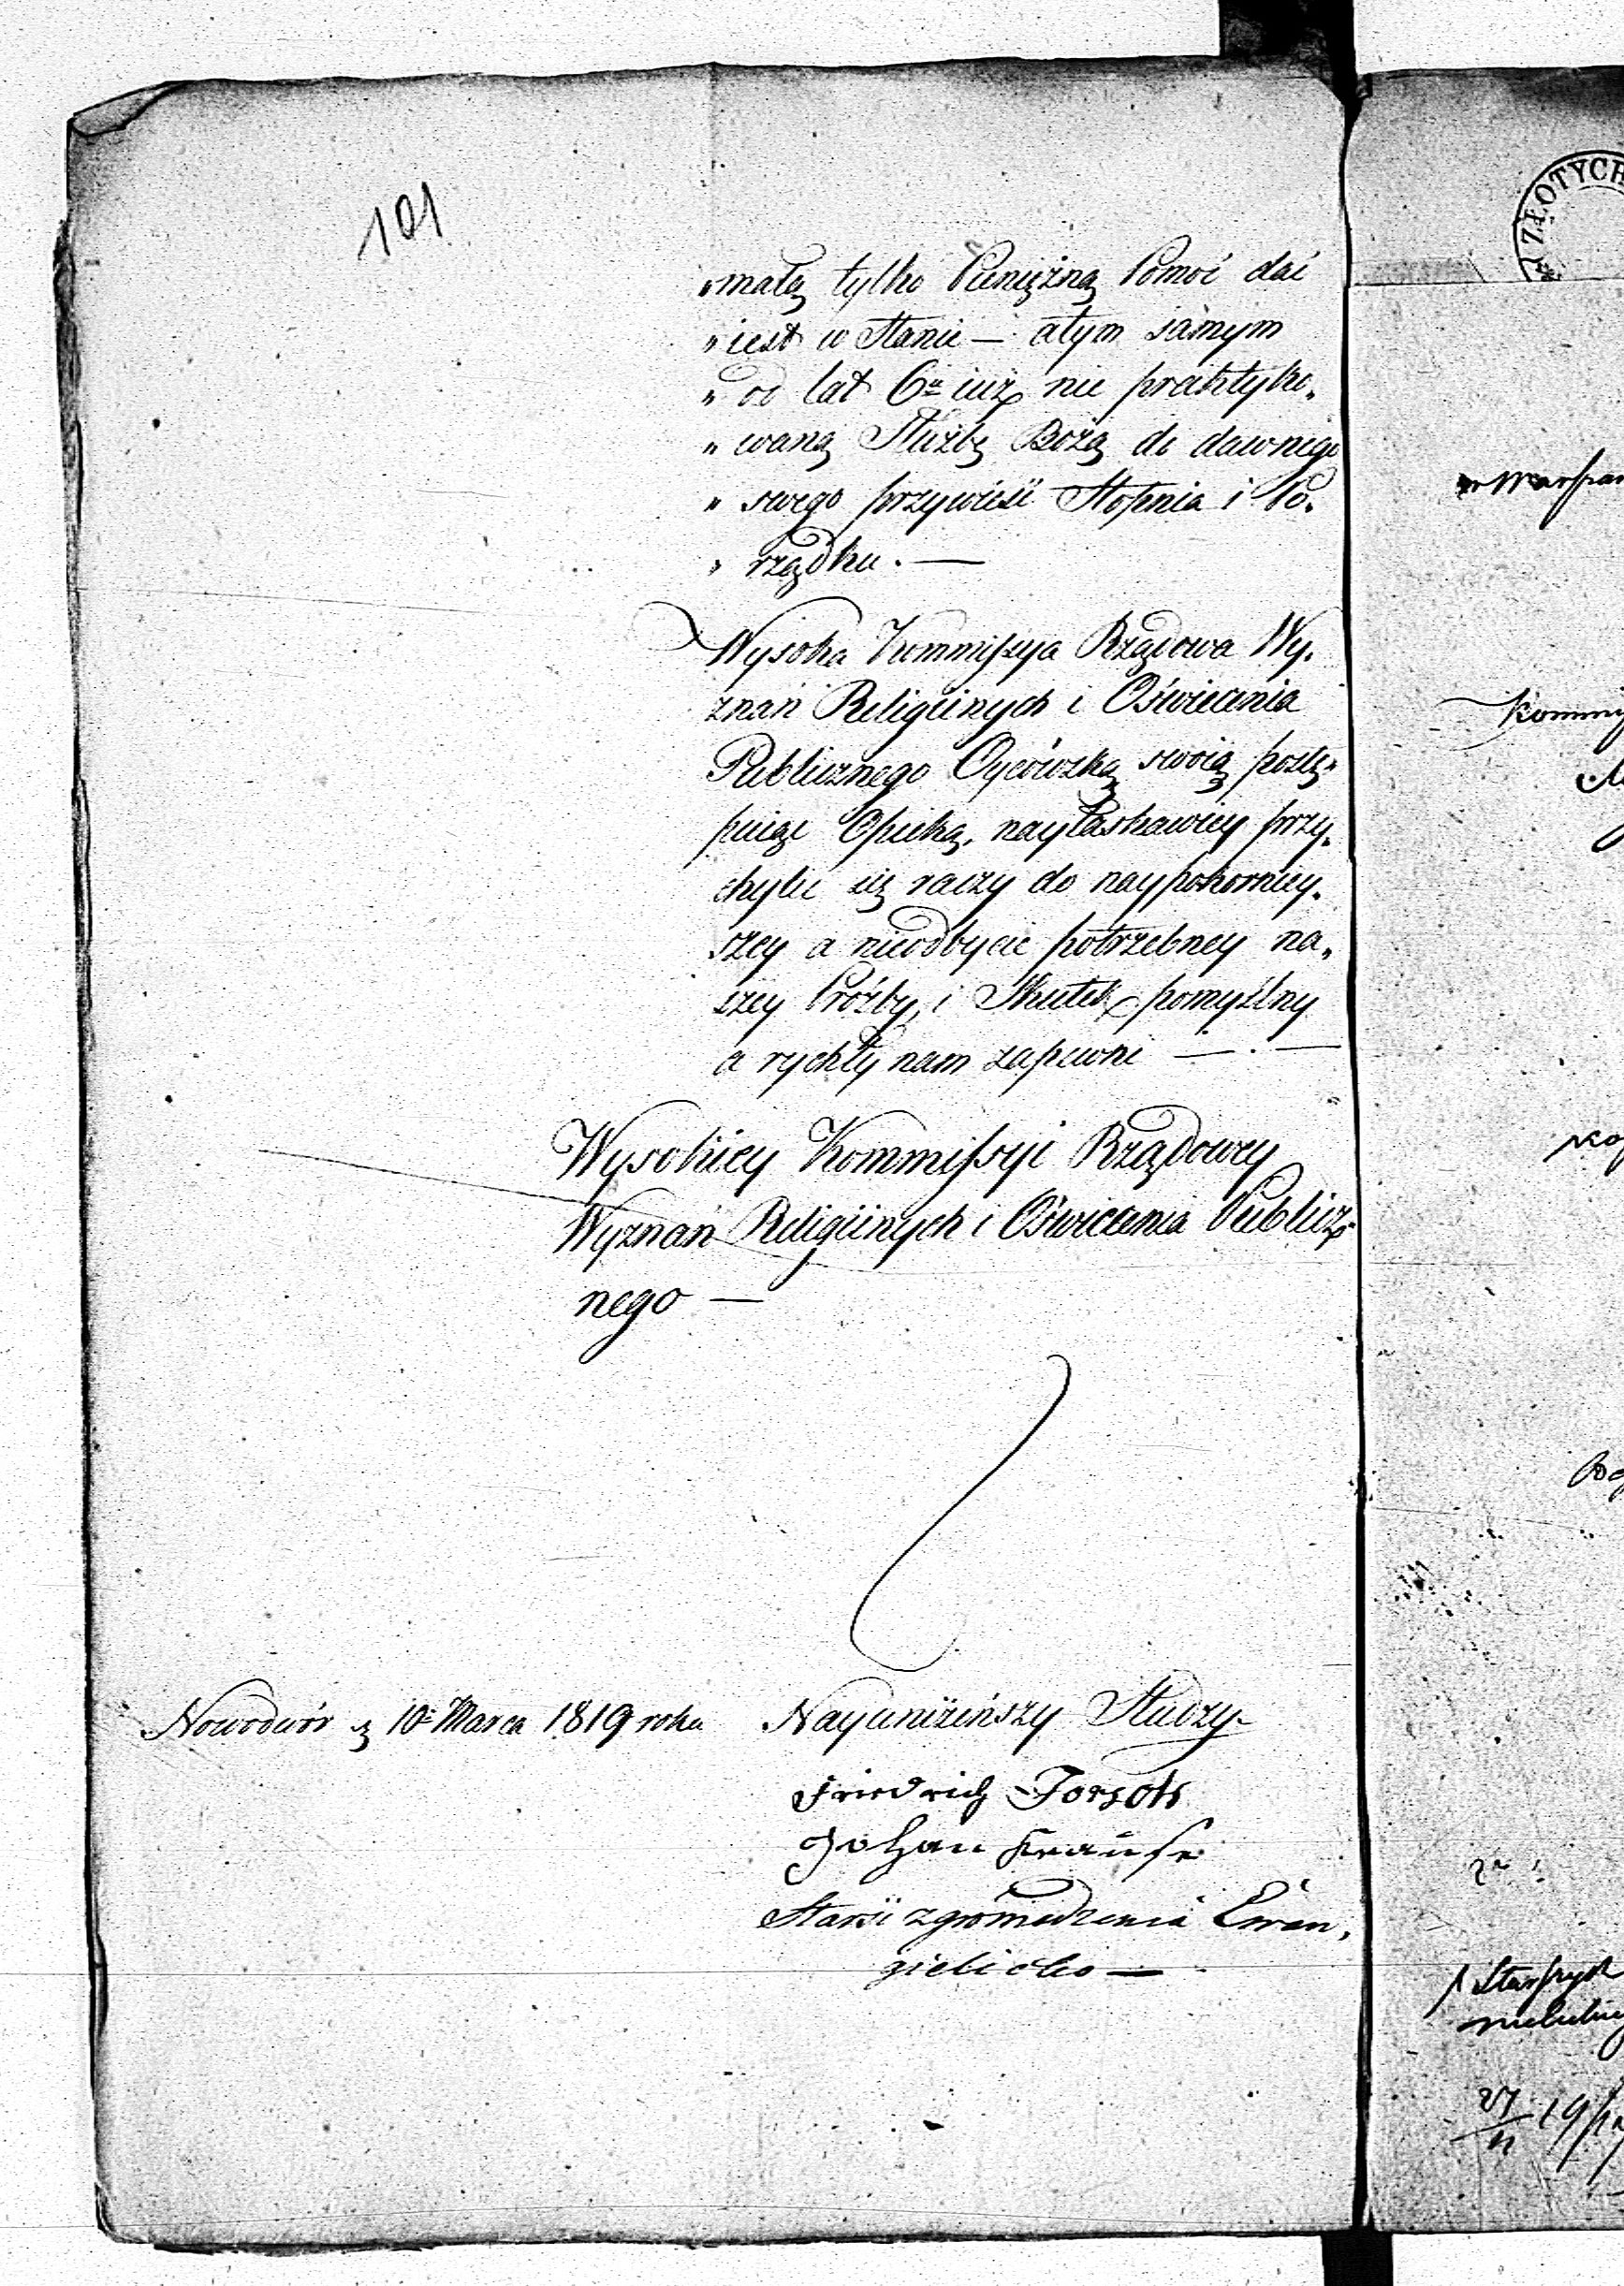 101
„małą tylko Pienięźną Pomoc dać
„iest w Stanie — atym samym
„od lat 6u iuż nie praktyko„
„waną Służbę Bożą do dawnego
„swego przywieść Stopnia i Po„
„rządku. —
Wysoka Kommissya Rządowa Wy„
znań Religiinych i Oświecenia
Publicznego Oycówską swoią postę„
puiąc Opieką, nayłaskawiey przy„
chylić się raczy do naypokorniey„
szey a nieodbycie potrzebney na„
szey Prożby, i Skutek pomyślny
a rychły nam zapewni — . —
Wysokiey Kommissyi Rządowey
Wyznań Religiinych i Oświecenia Publicz„
nego —
Nowodwór d 10o Marca 1819 roku
Nayuniżeńszy Studzy
Friedrich
Johan Krause
Starsi zgromadzenia Ewan„
gielicko —
ZŁOTYCH
Kommis